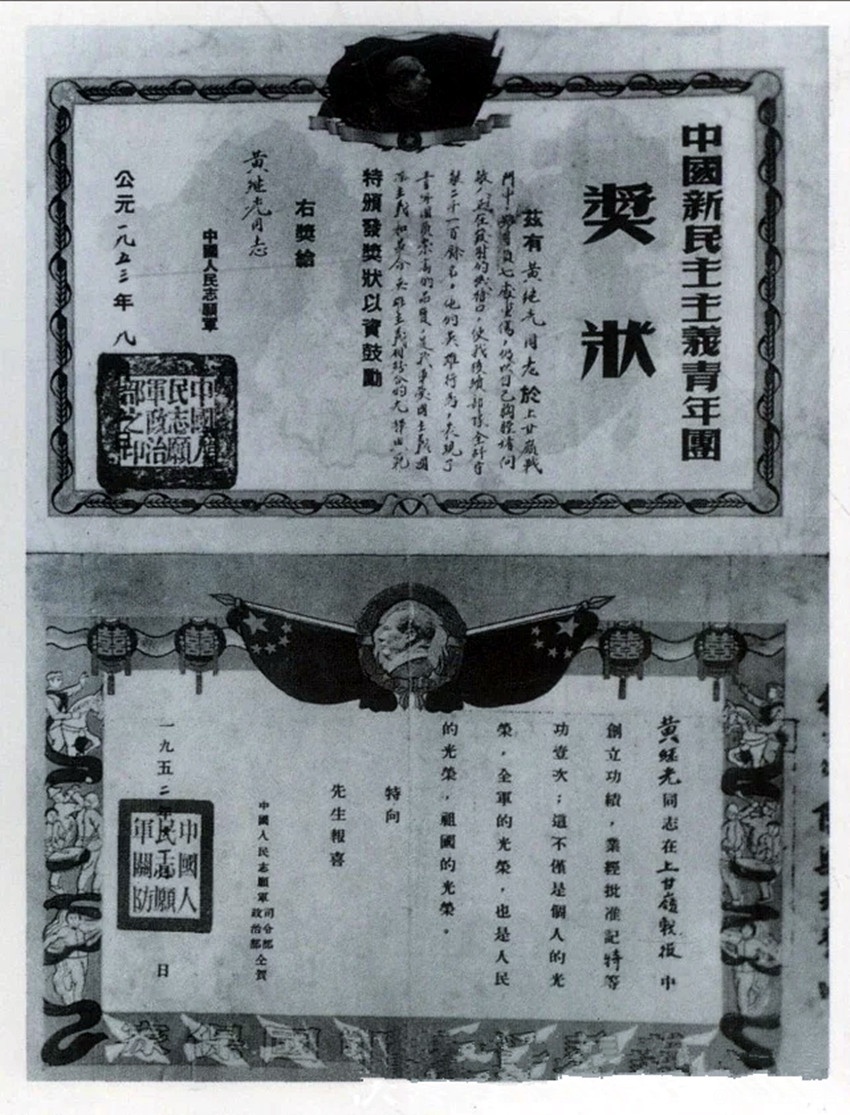 中國新民主主義青年團
獎狀
茲有黃继光同志於上甘嶺戰
鬥中，身負七處重傷，仍以自己胸膛堵向
敵人正在發射的機槍口，使我後續部隊全殲守
敵二千一百餘名，他们英雄行为，表現了
特頒發獎狀以資鼓勵
右獎給
黄继光同志
中國人民志願軍
公元一九五三年八
中國人民志願軍政治部之印
黄继光同志在上甘嶺戰役中
創立功績，業經批准記特等
功壹次；這不僅是個人的光
榮，全軍的光榮，也是人民
的光榮，祖國的光榮。
特向
先生報喜
中國人民志願軍司令部政治部仝賀
一九五二年
日
中國人民志願軍關防